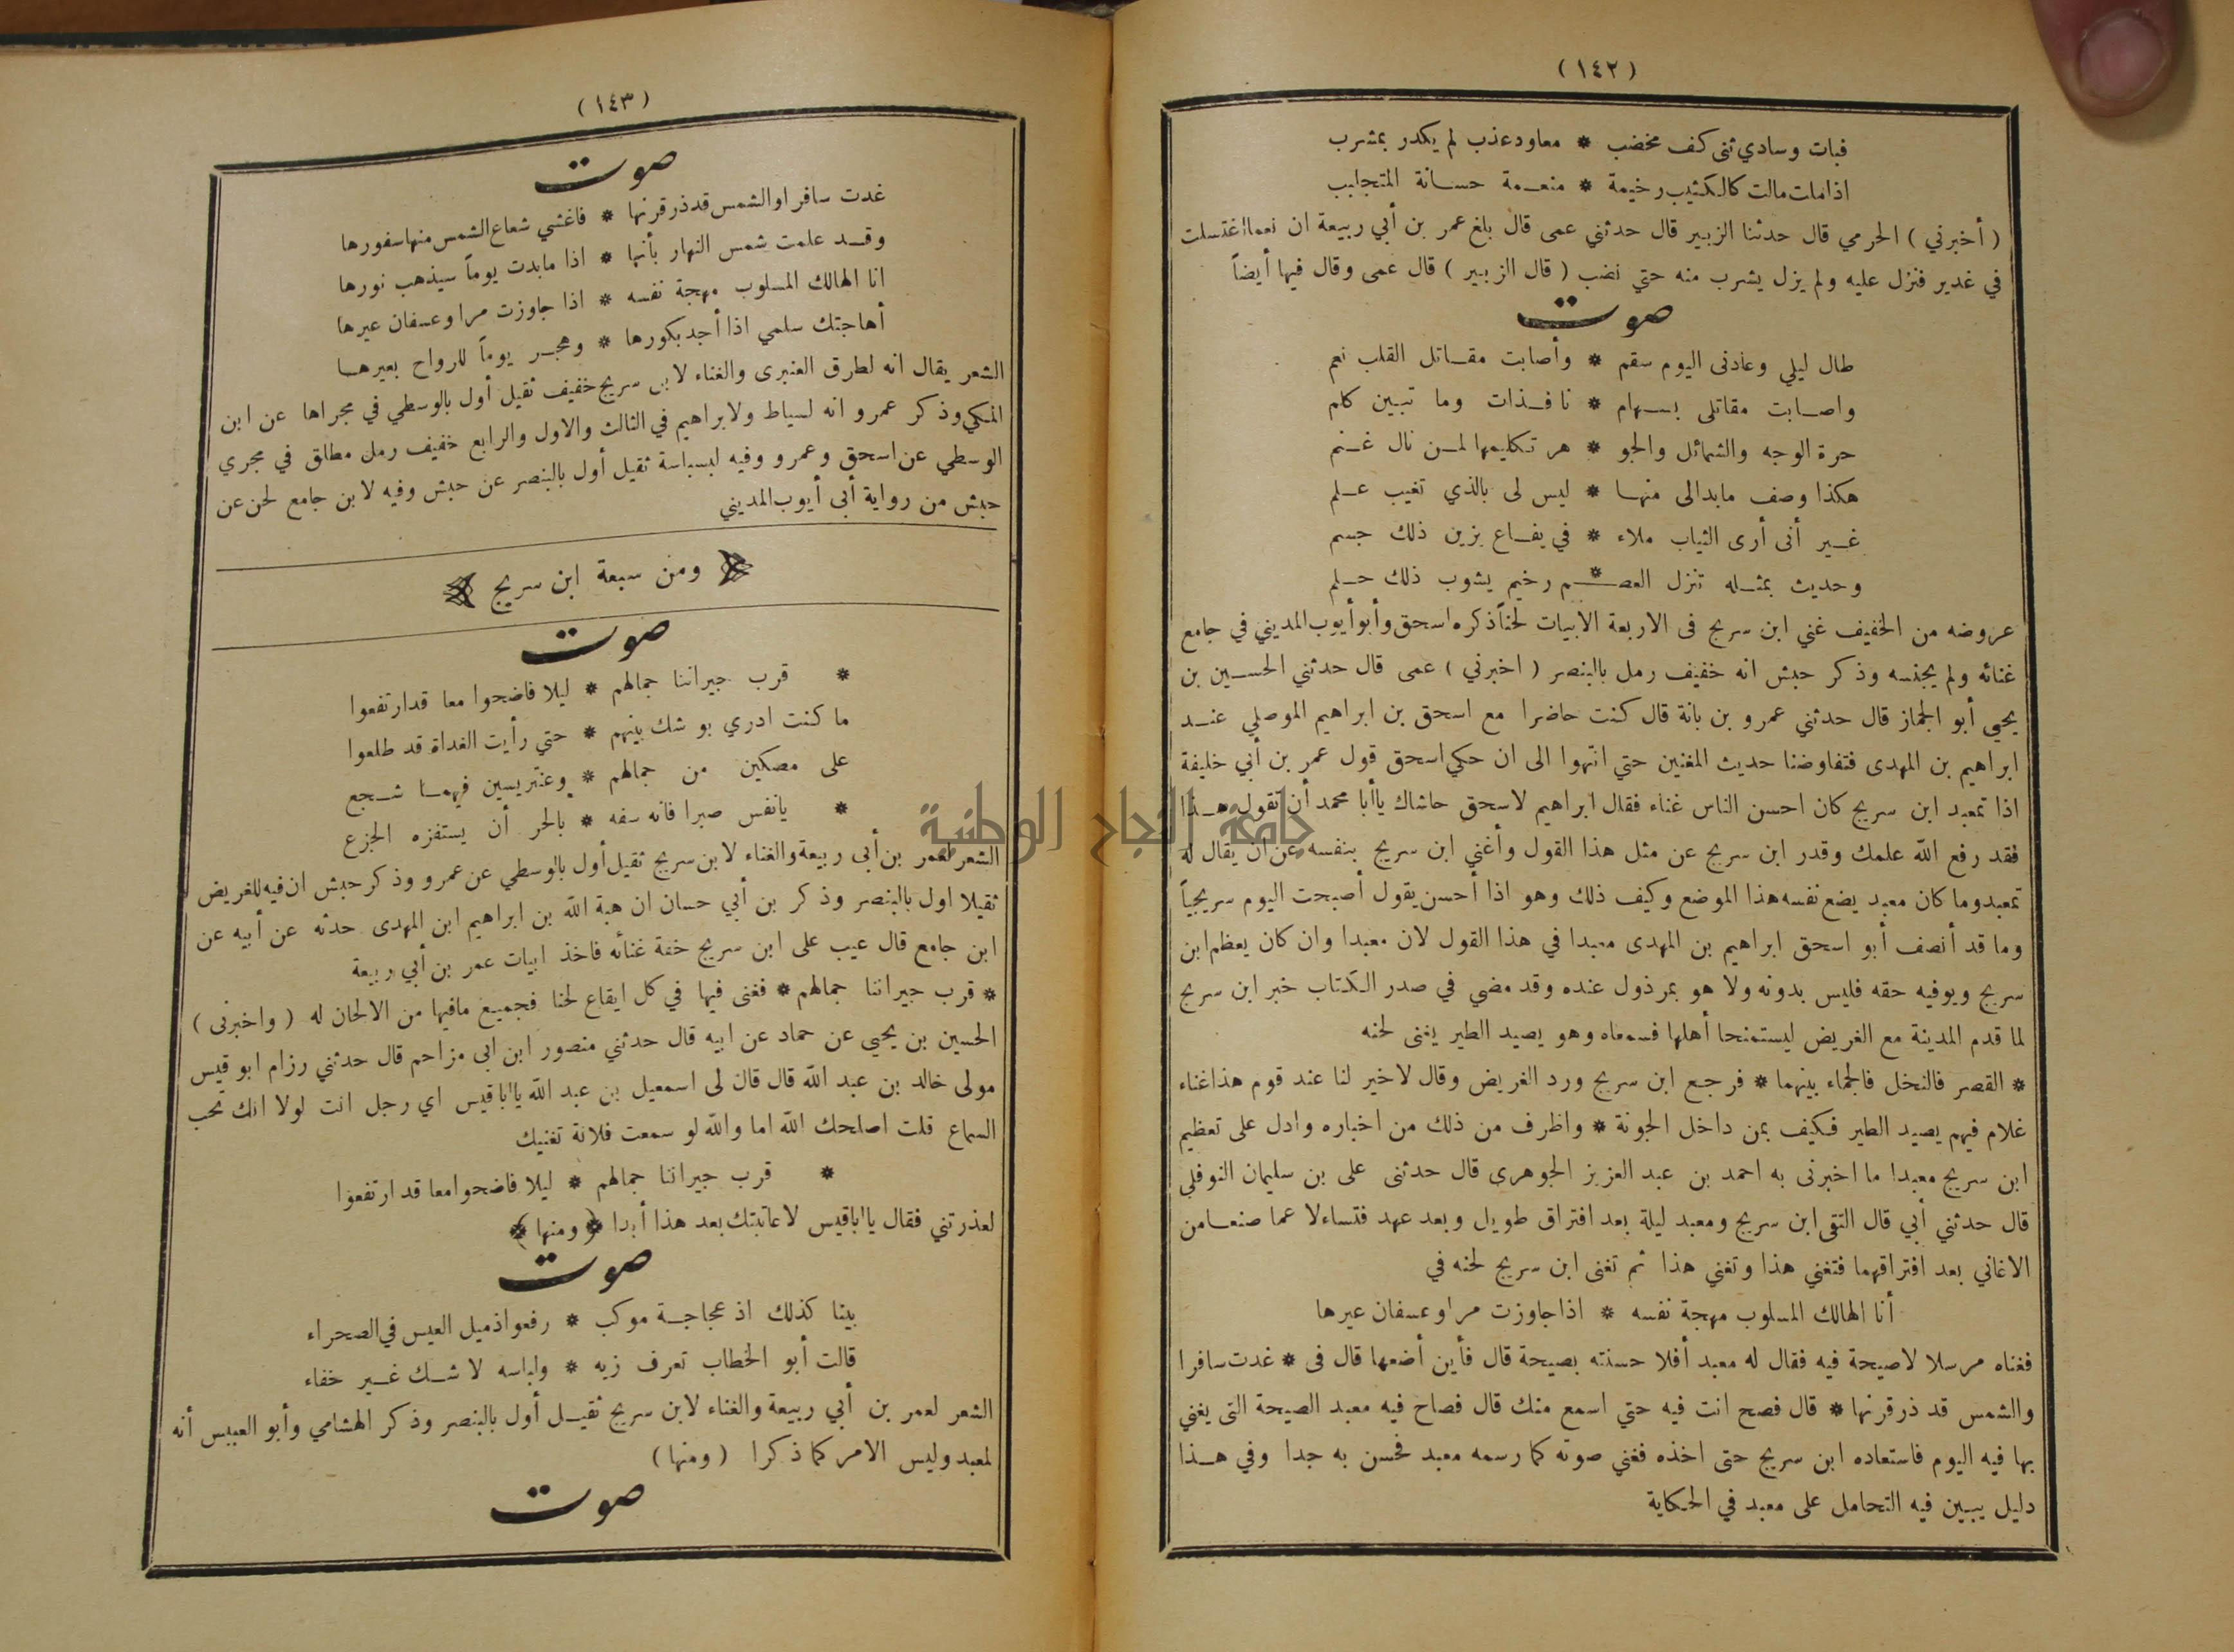 (١٤٢)
فبات وسادي ثنى كف مخضب * معاود عذب لم يكدر بمشرب
اذا مات مالت كالكثيب رخيمة * منعمة حسانة المتجلبب
(أخبرني) الحرمي قال حدثنا الزبير قال حدثني عمى قال بلغ عمر بن أبي ربيعة ان نعما اغتسلت
في غدير فنزل عليه ولم يزل يشرب منه حتي نضب (قال الزبير) قال عمى وقال فيها أيضاً
صوت
طال ليلي وعادنى اليوم سقم * وأصابت مقاتل القلب نعم
واصابت مقاتلى بسهام * نافذات وما تبين كلم
حرة الوجه والشمائل والجو * هر تكليمها لمن نال غنم
هكذا وصف مابدالى منها * ليس لى بالذي تغيب علم
غير أنى أرى الثياب ملاء * في يفاع يزين ذلك جسم
وحديث بمثله تنزل العصـ * ـم رخيم يشوب ذلك حلم
عروضه من الخفيف غني ابن سريج فى الاربعة الابيات لحناً ذكره اسحق وأبو أيوب المديني في جامع
غنائه ولم يجنسه وذكر حبش انه خفيف رمل بالبنصر (اخبرني) عمى قال حدثني الحسين بن
يحيي أبو الجماز قال حدثني عمرو بن بانة قال كنت حاضرا مع اسحق بن ابراهيم الموصلي عند
ابراهيم بن المهدى فتفاوضنا حديث المغنين حتي انتهوا الى ان حكى اسحق قول عمر بن أبي خليفة
اذا تمعبد ابن سريج كان احسن الناس غناء فقال ابراهيم لاسحق حاشاك ياأبا محمد أن تقول هذا
فقد رفع الله علمك وقدر ابن سريج عن مثل هذا القول وأغني ابن سريج بنفسه عن ان يقال له
تمعبد وما كان معبد يضع نفسه هذا الموضع وكيف ذلك وهو اذا أحسن يقول أصبحت اليوم سريجياً
وما قد أنصف أبو اسحق ابراهيم بن المهدى معبدا في هذا القول لان معبدا وان كان يعظم ابن
سريج ويوفيه حقه فليس بدونه ولا هو بمرذول عنده وقد مضي في صدر الكتاب خبر ابن سريج
لما قدم المدينة مع الغريض ليستمنحا أهلها فسمعاه وهو يصيد الطير يغنى لحنه
* القصر فالنخل فالجماء بينهما * فرجع ابن سريج ورد الغريض وقال لاخير لنا عند قوم هذا غناء
غلام فيهم يصيد الطير فكيف بمن داخل الجونة * واظرف من ذلك من اخباره وادل على تعظيم
ابن سريج معبدا ما اخبرنى به احمد بن عبد العزيز الجوهرى قال حدثنى على بن سليمان النوفلي
قال حدثني أبي قال التقى ابن سريج ومعبد ليلة بعد افتراق طويل وبعد عهد فتساءلا عما صنعا من
الاغاني بعد افتراقهما فتغني هذا وتغني هذا ثم تغنى ابن سريج لحنه في
أنا الهالك المسلوب مهجة نفسه * اذا جاوزت مرا وعسفان عيرها
فغناه مرسلا لاصيحة فيه فقال له معبد أفلا حسنته بصيحة قال فأين أضعها قال فى * غدت سافرا
والشمس قد ذر قرنها * قال فصح انت فيه حتي اسمع منك قال فصاح فيه معبد الصيحة التى يغني
بها فيه اليوم فاستعاده ابن سريج حتى اخذه فغني صوته كما رسمه معبد فحسن به جدا وفي هذا
دليل يبين فيه التحامل على معبد في الحكاية
(١٤٣)
صوت
غدت سافرا والشمس قد ذر قرنها * فاغشي شعاع الشمس منها سفورها
وقد علمت شمس النهار بأنها * اذا مابدت يوماً سيذهب نورها
انا الهالك المسلوب مهجة نفسه * اذا جاوزت مرا وعسفان عيرها
أهاجتك سلمي اذا أجد بكورها * وهجر يوماً للرواح بعيرها
الشعر يقال انه لطرق العنبرى والغناء لابن سريج خفيف ثقيل أول بالوسطي في مجراها عن ابن
المكي وذكر عمرو انه لسياط ولابراهيم في الثالث والاول والرابع خفيف رمل مطلق في مجري
الوسطي عن اسحق وعمرو وفيه لبسباسة ثقيل أول بالبنصر عن حبش وفيه لابن جامع لحن عن
حبش من رواية أبى أيوب المديني
ومن سبعة ابن سريج
صوت
* قرب جيراننا جمالهم * ليلا فاضحوا معا قد ارتفعوا
ما كنت ادري بوشك بينهم * حتي رأيت الغداة قد طلعوا
على مصكين من جمالهم * وعنتريسين فيهما شجع
* يانفس صبرا فانه سفه * بالحر أن يستفزه الجزع
الشعر لعمر بن أبى ربيعة والغناء لابن سريج ثقيل أول بالوسطي عن عمرو وذكر حبش ان فيه للغريض
ثقيلا اول بالبنصر وذكر بن أبي حسان ان هبة الله بن ابراهيم ابن المهدى حدثه عن أبيه عن
ابن جامع قال عيب على ابن سريج خفة غنائه فاخذ ابيات عمر بن أبي ربيعة
* قرب جيراننا جمالهم * فغنى فيها في كل ايقاع لحنا فجميع مافيها من الالحان له (واخبرنى)
الحسين بن يحيي عن حماد عن ابيه قال حدثني منصور ابن ابى مزاحم قال حدثني رزام ابو قيس
مولى خالد بن عبد الله قال قال لى اسمعيل بن عبد الله ياأبا قيس اي رجل انت لولا انك تحب
السماع قلت اصلحك الله اما والله لو سمعت فلانة تغنيك
* قرب جيراننا جمالهم * ليلا فاضحوا معا قد ارتفعوا
لعذرتني فقال ياابا قيس لاعاتبتك بعد هذا أبدا (ومنها)
صوت
بينا كذلك اذ عجاجة موكب * رفعوا ذميل العيس في الصحراء
قالت أبو الخطاب تعرف زيه * ولباسه لا شك غير خفاء
الشعر لعمر بن أبي ربيعة والغناء لابن سريج ثقيل أول بالبنصر وذكر الهشامي وأبو العبيس أنه
لمعبد وليس الامر كما ذكرا (ومنها)
صوت
جامعة النجاح الوطنية